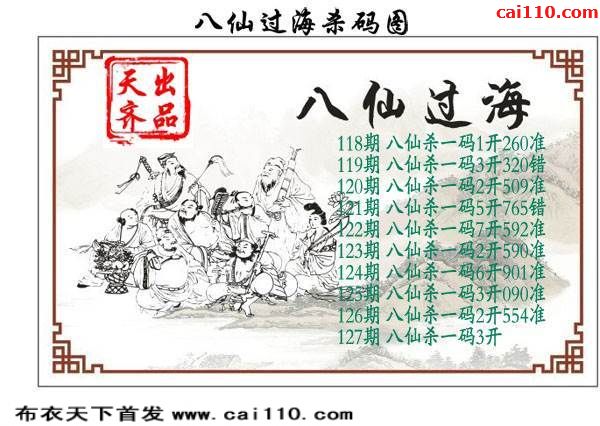 八仙过海杀码图
cai110.com
天出
齐品
八仙过海
118期 八仙杀一码1开260准
119期 八仙杀一码3开320错
120期 八仙杀一码2开509准
121期 八仙杀一码5开765错
122期 八仙杀一码7开592准
123期 八仙杀一码2开590准
124期 八仙杀一码6开901准
125期 八仙杀一码3开090准
126期 八仙杀一码2开554准
127期 八仙杀一码3开
布衣天下首发 www.cai110.com